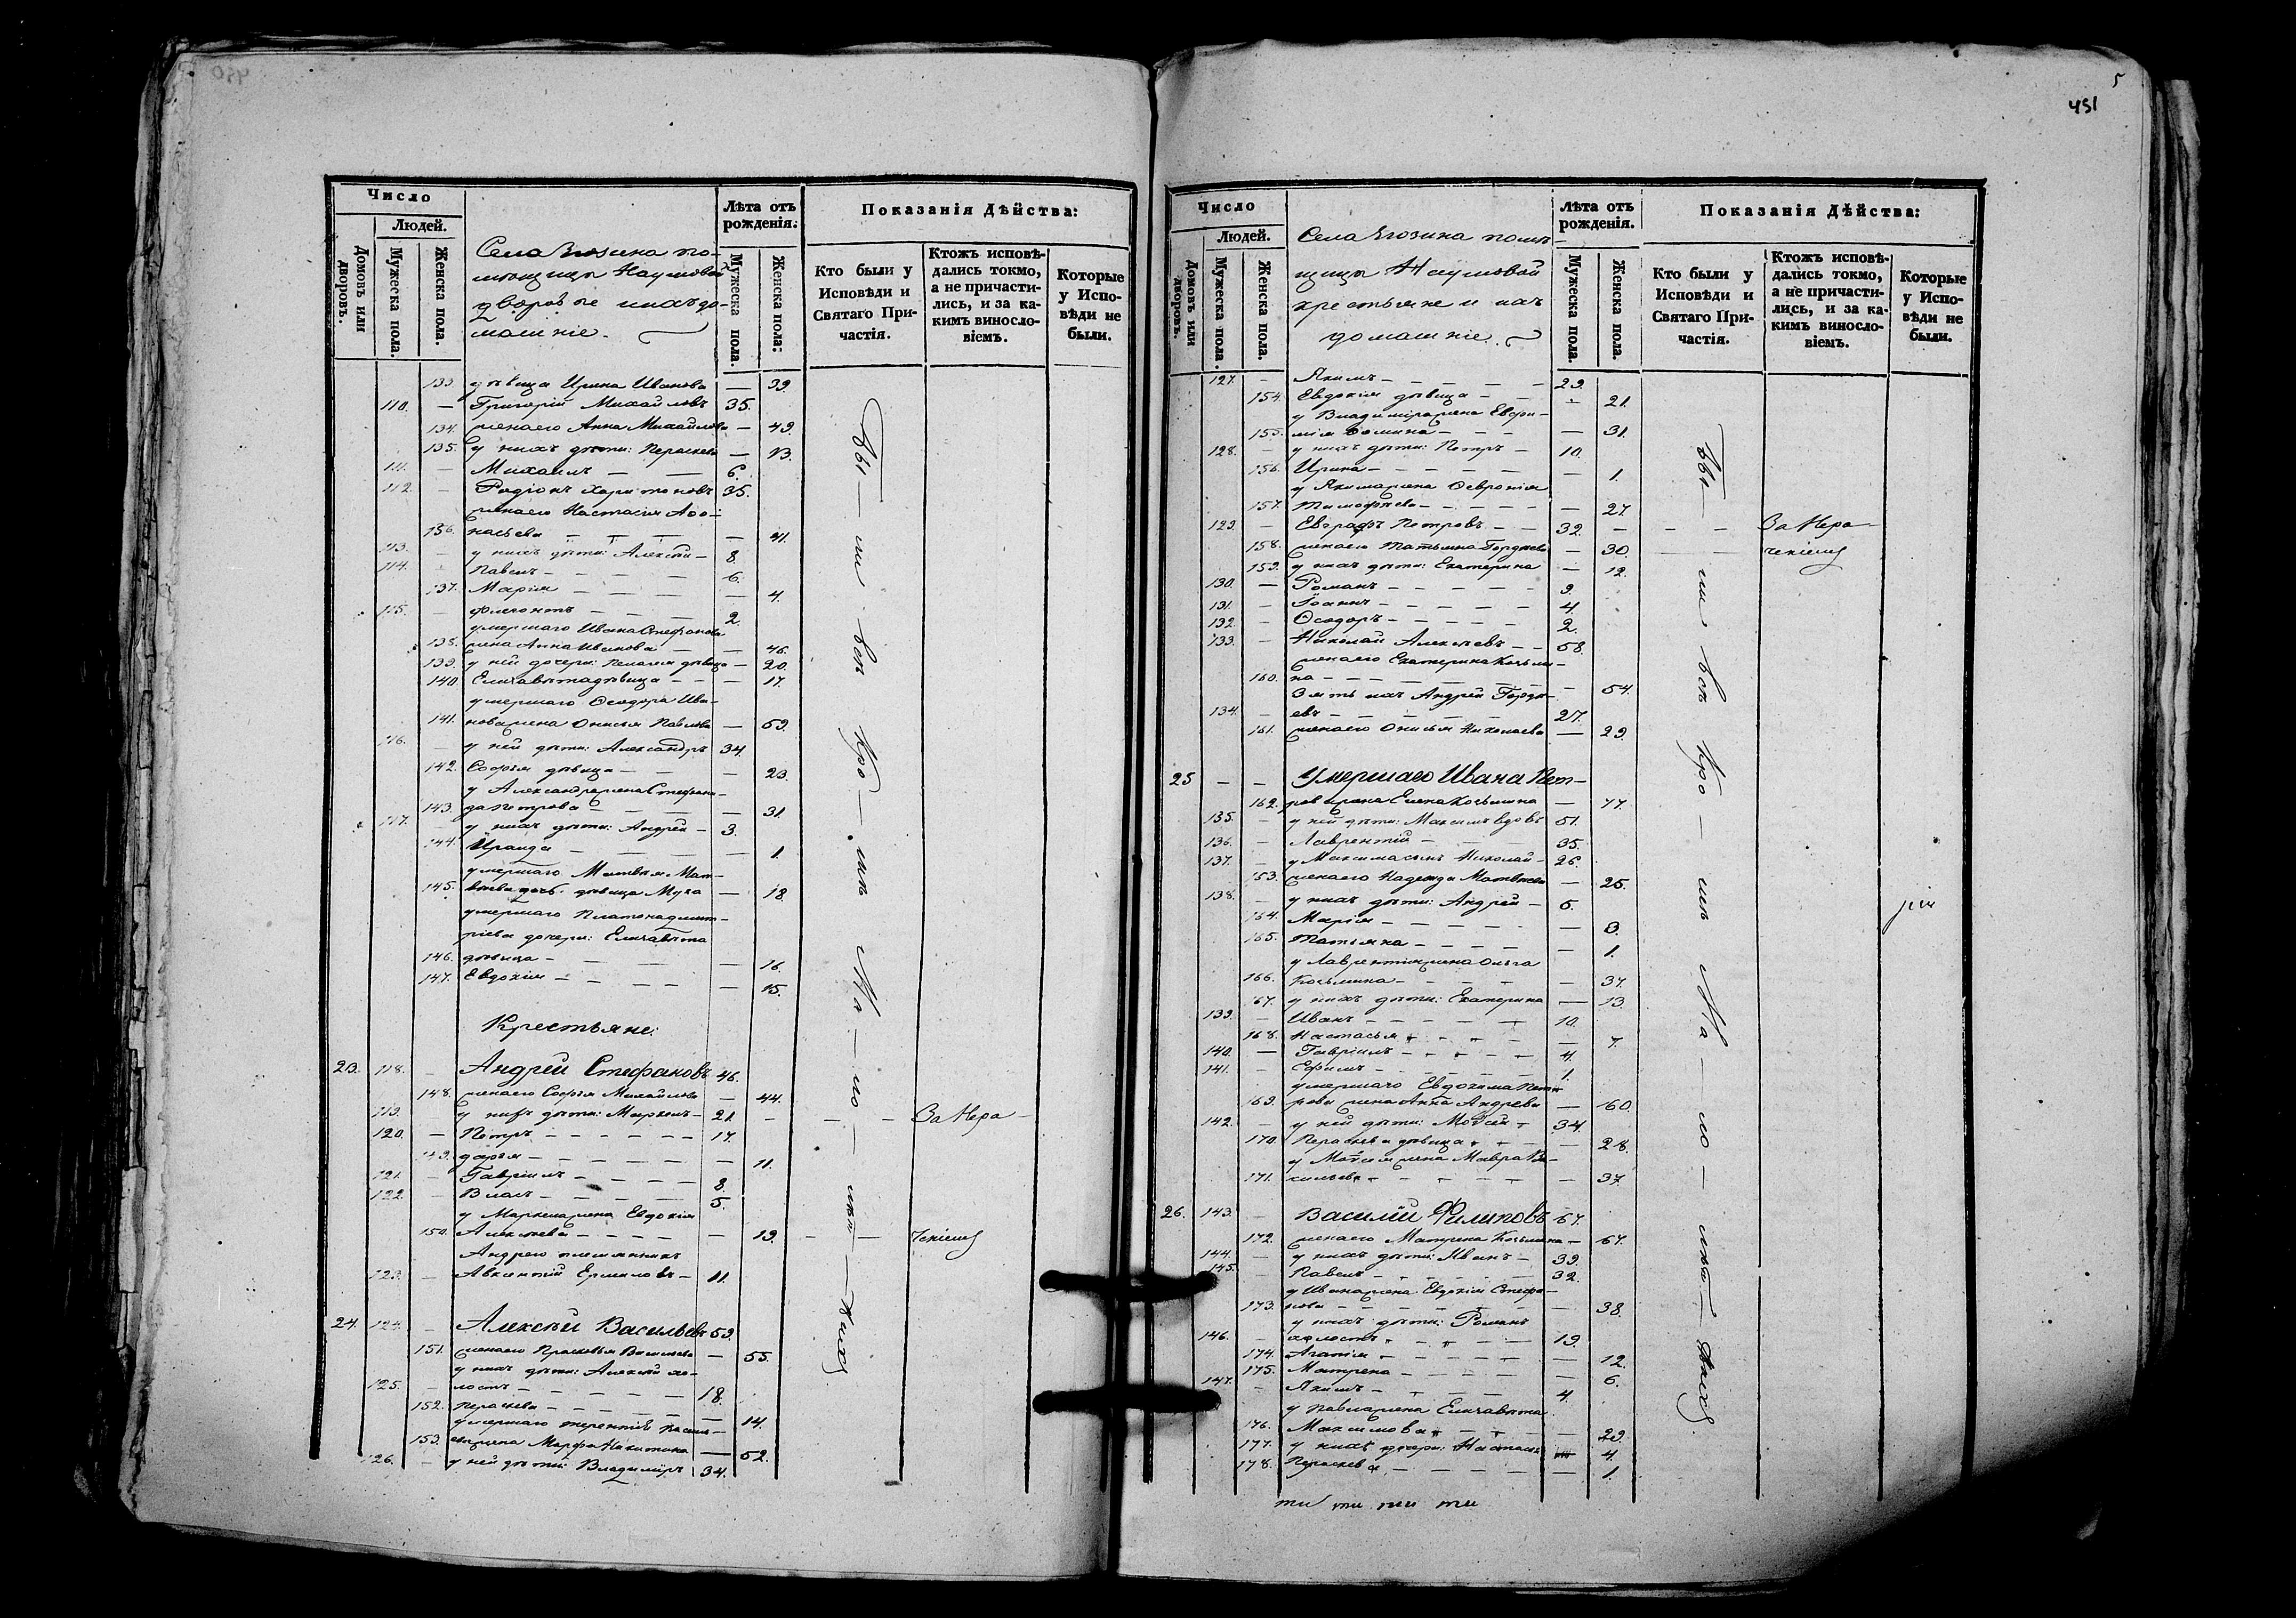 Число
Людей.
Домовъ или дворовъ.
Мужеска пола.
Женска пола.
Села помѣщицы Наумовой
дворовые и ихъ домашніе.
Лѣта отъ рожденія:
Мужеска пола.
Женска пола:
Показанія Дѣйства:
Кто были у Исповѣди и Святаго Причастія.
Ктожъ исповѣдались токмо, а не причастились, и за какимъ винословіемъ.
Которые у Исповѣди не были.
133. дѣвица Ирина Иванова — 39.
110. — Григорій Михайловъ 35.
134. жена его Анна Михайлова — 49.
135. у нихъ дѣти: Параскева — 13.
111. — Михаилъ — — 6.
112. — Родіонъ Харитоновъ 35.
жена его Настасія Афо-
136. насьева — — — 41.
113. — у нихъ дѣти: Алексѣй — 8.
114. — Павелъ — — — 6.
137. Марія — — — — 4.
115. — Флегонтъ — — — 2.
умершаго Ивана Стефанова
138. жена Анна Иванова — — 46.
139. у ней дочери: Пелагея дѣвица — 20.
140. Елизавета дѣвица — — — 17.
умершаго Ѳеодора Ива-
141. нова жена Онисья Павлова — 59.
116. — у ней дѣти: Александръ 34.
142. Софья дѣвица — — — 23.
у Александра жена Степани-
143. да Петрова — — — 31.
117. — у нихъ дѣти: Андрей — 3.
144. Ираида — — — — 1.
умершаго Матвея Мат-
145. вѣева дочь дѣвица Муза — 18.
умершаго Платона Дмит-
ріева дочери: Елизавета
146. дѣвица — — — — 16.
147. Евдокія — — — — 15.
Крестьяне:
23. 118. — Андрей Стефановъ 46.
148. жена его Софья Михайлова — 44.
119. у нихъ дѣти: Маркелъ — 21. — — — За нера-
120. — Петръ — — — — 17.
149. Дарья — — — — — 11.
121. — Гавріилъ — — — — 8.
122. — Власъ — — — — 5.
у Маркела жена Евдокія
150. Алексѣева — — — — 19. — — ченіемъ
Андрею племянникъ
123. — Авксентій Ермиловъ — 11.
24. 124. — Алексѣй Васильевъ 59.
151. жена его Прасковья Васильева — 55.
у нихъ дѣти: Алексѣй хо-
125. — лостъ — — — — 18.
152. Параскева — — — — 14.
умершаго Терентія Василь-
153. ева жена Марфа Никитина — 52.
126. — у ней дѣти: Владиміръ 34.
Бы — ли всѣ кро — мѣ Ма — ло — лѣт — ныхъ
5
451
Число
Людей.
Домовъ или дворовъ.
Мужеска пола.
Женска пола.
Села помѣ-
щицы Наумовой
крестьяне и ихъ
домашніе.
Лѣта отъ рожденія.
Мужеска пола.
Женска пола.
Показанія Дѣйства:
Кто были у Исповѣди и Святаго Причастія.
Ктожъ исповѣдались токмо, а не причастились, и за какимъ винословіемъ.
Которые у Исповѣди не были.
127. — Якимъ — — — — — 29.
154. Евдокія дѣвица — — — 21.
у Владиміра жена Евфи-
155. мія Фомина — — — — 31.
128. — у нихъ дѣти: Петръ — 10.
156. Ирина — — — — — 1.
у Якима жена Февронія
157. Тимофѣева — — — — 27.
129. — Евграфъ Петровъ — — 32. — — — За нера-
158. жена его Татьяна Гордѣева — 30. — — ченіемъ
159. у нихъ дѣти: Екатерина — 12.
130. — Романъ — — — — — 9.
131. — Іоаннъ — — — — — 4.
132. — Ѳеодоръ — — — — 2.
133. — Николай Алексѣевъ — — 58.
жена его Екатерина Козьми-
160. на — — — — — — 54.
Зять ихъ Андрей Гордѣ-
134. — евъ — — — — — 27.
161. жена его Онисья Николаева — 29.
25 — — Умершаго Ивана Пет-
162. рова жена Елена Козьмина — 77.
135. — у ней дѣти: Максимъ вдовъ 51.
136. — Лаврентій — — — 35.
137. — у Максима сынъ Николай — 26.
163. жена его Надежда Матвѣева — 25.
138. — у нихъ дѣти: Андрей — 5.
164. Марія — — — — — 3.
165. Татьяна — — — — — 1.
у Лаврентія жена Ольга
166. Козьмина — — — — — 37.
167. у нихъ дѣти: Екатерина — 13
139. — Иванъ — — — — — 10.
168. Настасья — — — — — 7.
140. — Гавріилъ — — — — — 4.
141. — Ефимъ — — — — — 1.
умершаго Евдокима Пет-
169. рова жена Анна Андреева — 60.
142. — у ней дѣти: Моисей — 34.
170. Параскева дѣвица — — — 28.
у Моисея жена Мавра Ва-
171. сильева — — — — — 37.
26. 143. — Василій Филиповъ 67.
172. жена его Матрена Козьмина — 67.
144. — у нихъ дѣти: Иванъ — 39.
145. — Павелъ — — — — — 32.
у Ивана жена Евдокія Стефа-
173. нова — — — — — — 38.
у нихъ дѣти: Романъ
146. — холостъ — — — — 19.
174. Агапія — — — — — 12.
175. Матрена — — — — — 6.
147. — Якимъ — — — — 4.
у Павла жена Елизавета
176. Максимова — — — — 29.
177. у нихъ дочери: Настасья — 4.
178. Параскева — — — — — 1.
Бы — ли всѣ кро — мѣ Ма — ло — лѣт — ныхъ